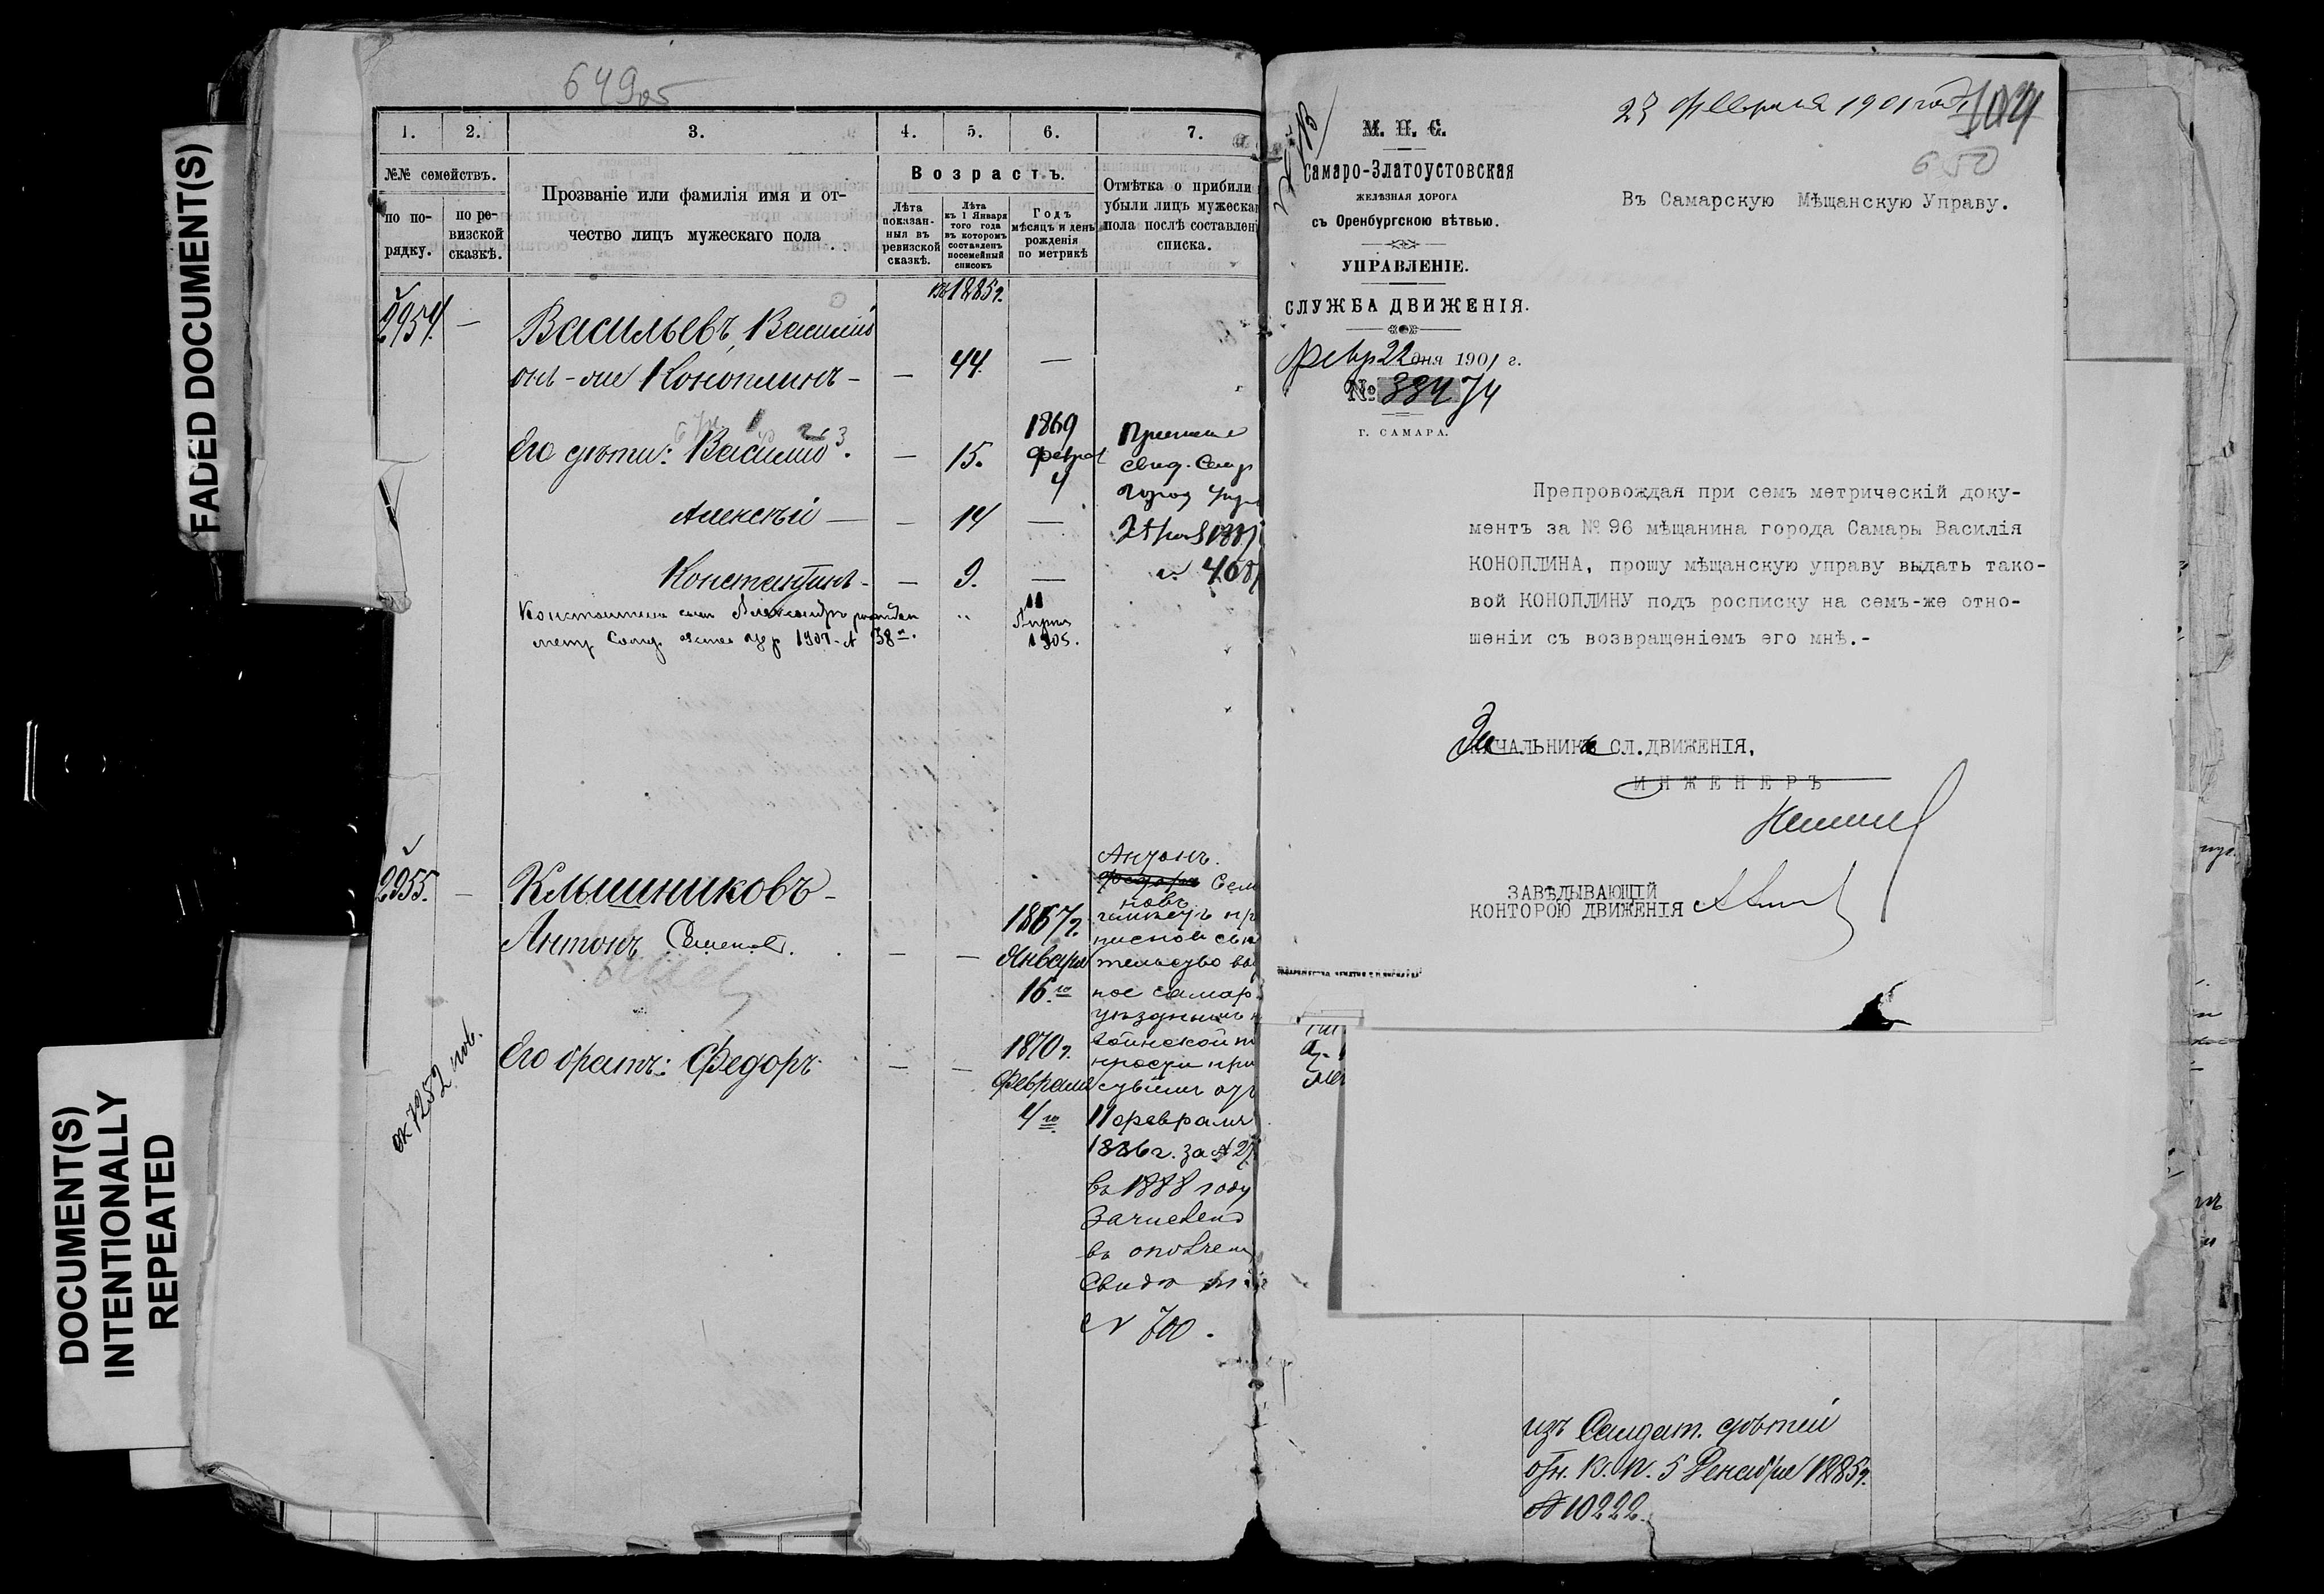 FADED DOCUMENT(S)
DOCUMENT(S)
INTENTIONALLY
REPEATED
649об
1. 2. 3. 4. 5. 6. 7.
№№ семействъ.
по по-
рядку.
по ре-
визской
сказкѣ.
Прозваніе или фамилія имя и от-
чество лицъ мужескаго пола
Возрастъ.
Лѣта
показан-
ныя въ
ревизской
сказкѣ.
Лѣта
къ 1 Января
того года
въ которомъ
составленъ
посемейный
списокъ
Годъ
мѣсяцъ и день
рожденія
по метрикѣ
Отмѣтка о прибыли
убыли лицъ мужеска
пола послѣ составлен
списка.
на 1885г.
2954. — Васильевъ, Василій
онъ-же Коноплинъ - — 44. —
Его дѣти: Василій. — 15. 1869 Феврал 4
Алексѣй — — 14 —
Константинъ - — 9. —
Константина сынъ Александръ
11
Апрѣл
1905.
свид. Самар
город
2955. — Клышниковъ -
Антонъ Семеновъ. — — 1867г.
Января
16го
Его братъ: Федоръ — — 1870г.
Февраля
4го
Антонъ.
Федоръ Семе
новъ
писное сви
тельство вы
ное самар.
уѣзднымъ
воинской по
1886г. за № 27
въ 1888 году
Зачисленъ
въ ополчен
Свидѣт
№ 700.
ок 7282 поб.
М. П. С.
Самаро-Златоустовская
ЖЕЛѢЗНАЯ ДОРОГА
съ Оренбургскою вѣтвью.
УПРАВЛЕНІЕ.
СЛУЖБА ДВИЖЕНІЯ.
Февр 22 дня 1901 г.
№ 33474
Г. САМАРА.
23 февраля 1901 года
104
650
Въ Самарскую Мѣщанскую Управу.
Препровождая при семъ метрическій доку-
ментъ за № 96 мѣщанина города Самары Василія
КОНОПЛИНА, прошу мѣщанскую управу выдать тако-
вой КОНОПЛИНУ подъ росписку на семъ-же отно-
шеніи съ возвращеніемъ его мнѣ.-
За НАЧАЛЬНИКА СЛ. ДВИЖЕНІЯ,
ИНЖЕНЕРЪ
ЗАВѢДЫВАЮЩІЙ
КОНТОРОЮ ДВИЖЕНІЯ
изъ Солдат. дѣтей
отн. К. П. 5 Декабря 1885г.
№ 10222.